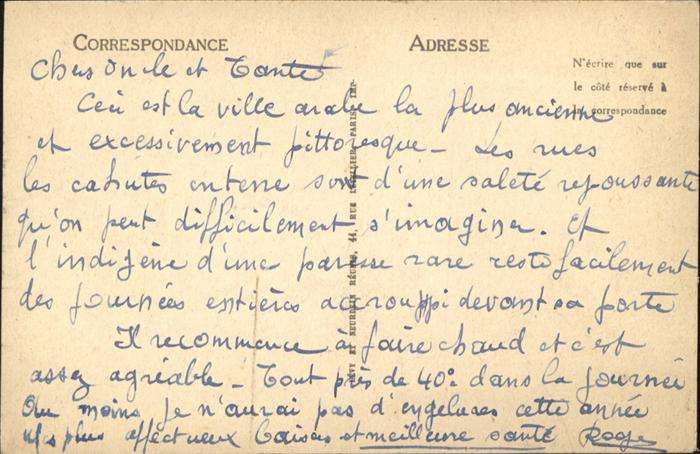 CORRESPONDANCE
ADRESSE
N'écrire que sur
le côté réservé à
la correspondance
Chers Oncle et Tante
Ceci est la ville arabe la plus ancienne
et excessivement pittoresque – Les rues
les cahutes en terre sont d'une saleté repoussante
qu'on peut difficilement s'imaginer. Et
l'indigène d'une paresse rare reste facilement
des journées entières accrouppi devant sa porte
Il recommence à faire chaud et c'est
assez agréable – Tout près de 40° dans la journée
Au moins je n'aurai pas d'engelures cette année
Mes plus affectueux baisers et meilleure santé Roger
RÉUNIS, 44, RUE LETELLIER, PARIS